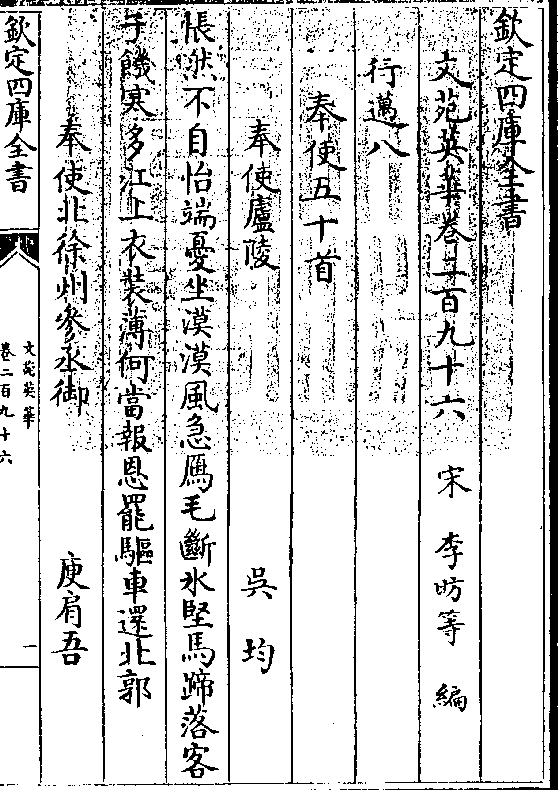 欽定四庫全書
文苑英華卷二百九十六　宋　李昉等　編
行邁八
奉使五十首
奉使廬陵　吳均
悵然不自怡端憂坐漠漠風急鴈毛斷氷堅馬蹄落客
子饑寒多江上衣裝薄何當報恩罷驅車還北郭
奉使北徐州參丞御　庾肩吾
欽定四庫全書
文苑英華
卷二百九十六
一